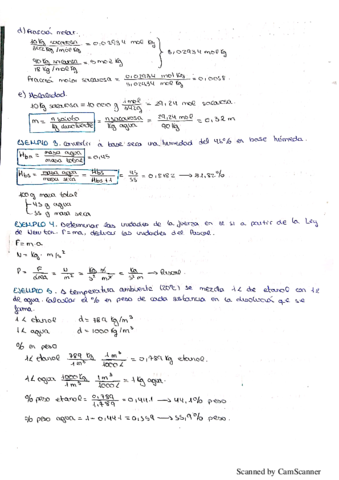 d) Fracción molar.
10 kg sacarosa / 342 kg/mol kg = 0,02934 mol kg
90 kg sacarosa / 18 kg/mol kg = 5 mol kg } 5,02934 mol kg
Fracción molar sacarosa = 0,02934 mol kg / 5,02934 mol kg = 0,0058.
e) Molalidad.
10 kg sacarosa = 10000 g 1 mol / 342 g = 29,24 mol sacarosa.
m = n soluto / kg disolvente = n sacarosa / kg agua = 29,24 mol / 90 kg = 0,32 m
EJEMPLO 3. Convertir a base seca una humedad del 45% en base húmeda.
Hbh = masa agua / masa total = 0,45
Hbs = masa agua / masa seca = 45 / 55 = 0,8182 → 81,82%
100 g masa total
45 g agua
55 g masa seca
EJEMPLO 4. Determinar las unidades de la fuerza en el SI a partir de la Ley
de Newton. F=m·a. Derivar las unidades del Pascal.
F = m·a
N = kg · m/s²
P = F / área = N / m² = → Pascal.
EJEMPLO 5. A temperatura ambiente (20ºC) se mezcla 1L de etanol con 1L
de agua. Calcular el % en peso de cada sustancia en la disolución que se
forma.
1L etanol d = 789 kg/m³
1L agua d = 1000 kg/m³
% en peso
1L etanol 789 kg / 1 m³ 1 m³ / 1000 L = 0,789 kg etanol.
1L agua 1000 kg / 1 m³ 1 m³ / 1000 L = 1 kg agua.
% peso etanol = 0,789 / 1,789 = 0,441 → 44,1% peso
% peso agua = 1 - 0,441 = 0,559 → 55,9% peso.
Scanned by CamScanner